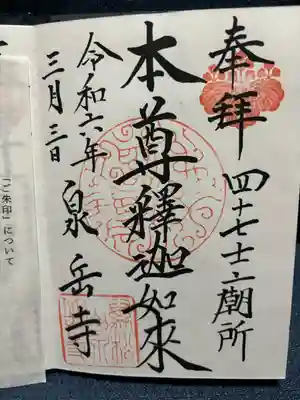 奉拝 四十七士廟所
本尊釋迦如來
泉岳寺
令和六年
三月三日
「ご朱印」について